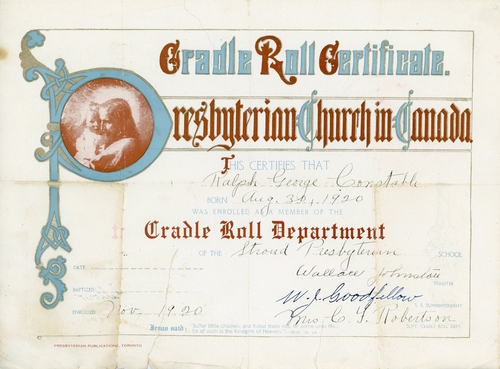 Cradle Roll Certificate.
Presbyterian Church in Canada
THIS CERTIFIES THAT
Ralph George Constable
BORN Aug. 1920
WAS ENROLLED AS A MEMBER OF THE
Cradle Roll Department
OF THE Stroud Presbyterian SCHOOL
DATE
Wallace Johnston
MINISTER
BAPTIZED
W. J. Goodfellow
S. S. SUPERINTENDENT
ENROLLED Nov. 1920
Mrs. C. S. Robertson
SUPT. CRADLE ROLL DEPT.
Jesus said: "Suffer little children, and forbid them not, to come unto Me:
for of such is the Kingdom of Heaven."
PRESBYTERIAN PUBLICATIONS, TORONTO